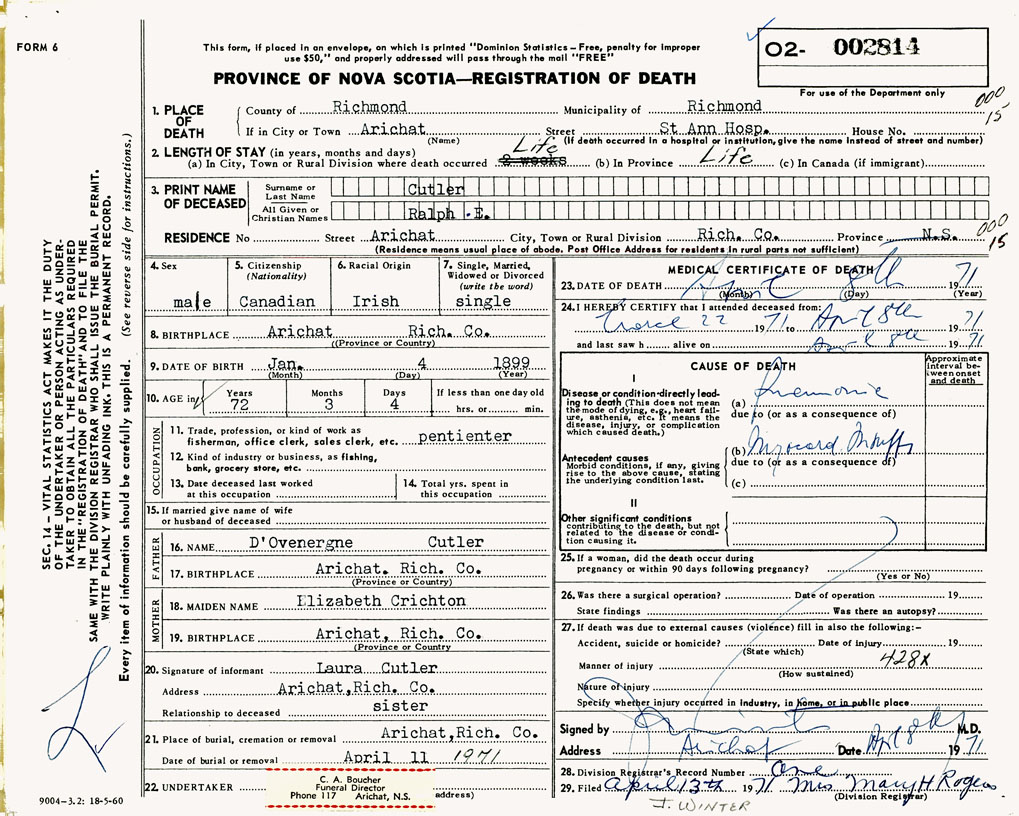 FORM 6
This form, if placed in an envelope, on which is printed "Dominion Statistics – Free, penalty for improper
use $50," and properly addressed will pass through the mail "FREE"
O2- 002814
For use of the Department only
PROVINCE OF NOVA SCOTIA—REGISTRATION OF DEATH
000
15
1. PLACE OF DEATH
County of Richmond Municipality of Richmond
If in City or Town Arichat Street St Ann Hosp. House No.
(Name) (If death occurred in a hospital or institution, give the name instead of street and number)
2. LENGTH OF STAY (in years, months and days)
Life
(a) In City, Town or Rural Division where death occurred 2 weeks (b) In Province Life (c) In Canada (if immigrant)
3. PRINT NAME OF DECEASED
Surname or Last Name Cutler
All Given or Christian Names Ralph .E.
000
15
RESIDENCE No Street Arichat City, Town or Rural Division Rich. Co. Province N.S.
(Residence means usual place of abode. Post Office Address for residents in rural parts not sufficient)
4. Sex
male
5. Citizenship
(Nationality)
Canadian
6. Racial Origin
Irish
7. Single, Married,
Widowed or Divorced
(write the word)
single
8. BIRTHPLACE Arichat Rich. Co.
((Province or Country)
9. DATE OF BIRTH Jan. 4 1899
(Month) (Day) (Year)
10. AGE in
Years Months Days If less than one day old
72 3 4 hrs. or min.
OCCUPATION
11. Trade, profession, or kind of work as
fisherman, office clerk, sales clerk, etc. pentienter
12. Kind of industry or business, as fishing,
bank, grocery store, etc.
13. Date deceased last worked
at this occupation
14. Total yrs. spent in
this occupation
15. If married give name of wife
or husband of deceased
FATHER
16. NAME D'Ovenergne Cutler
17. BIRTHPLACE Arichat. Rich. Co.
(Province or Country)
MOTHER
18. MAIDEN NAME Elizabeth Crichton
19. BIRTHPLACE Arichat, Rich. Co.
(Province or Country
20. Signature of informant Laura Cutler
Address Arichat,Rich. Co.
Relationship to deceased sister
21. Place of burial, cremation or removal Arichat,Rich. Co.
Date of burial or removal April 11 1971
22. UNDERTAKER
C. A. Boucher
Funeral Director
Phone 117 Arichat, N.S.
address)
MEDICAL CERTIFICATE OF DEATH
23. DATE OF DEATH April 8th 1971
(Month) (Day) (Year)
24. I HEREBY CERTIFY that I attended deceased from:
March 22 1971 to April 8th 1971
and last saw h alive on April 8th 1971
CAUSE OF DEATH
Approximate
interval be-
tween onset
and death
I
Disease or condition directly lead-
ing to death (This does not mean
the mode of dying, e.g., heart fail-
ure, asthenia, etc. It means the
disease, injury, or complication
which caused death.)
(a) Pneumonia
due to (or as a consequence of)
Antecedent causes
Morbid conditions, if any, giving
rise to the above cause, stating
the underlying condition last.
(b) Myocard
due to (or as a consequence of)
(c)
II
Other significant conditions
contributing to the death, but not
related to the disease or condi-
tion causing it.
25. If a woman, did the death occur during
pregnancy or within 90 days following pregnancy?
(Yes or No)
26. Was there a surgical operation? Date of operation 19
State findings Was there an autopsy?
27. If death was due to external causes (violence) fill in also the following:–
Accident, suicide or homicide? Date of injury 19
(State which)
428x
Manner of injury
(How sustained)
Nature of injury
Specify whether injury occurred in Industry, in home, or in public place
Signed by M.D.
Address Arichat Date April 8th 1971
28. Division Registrar's Record Number One
29. Filed April 13th 1971 Mrs Mary H Rogers
(Division Registrar)
J. WINTER
SEC. 14 – VITAL STATISTICS ACT MAKES IT THE DUTY
OF THE UNDERTAKER OR PERSON ACTING AS UNDER-
TAKER TO OBTAIN ALL THE PARTICULARS REQUIRED
IN THE "REGISTRATION OF DEATH" AND TO FILE THE
SAME WITH THE DIVISION REGISTRAR WHO SHALL ISSUE THE BURIAL PERMIT.
WRITE PLAINLY WITH UNFADING INK. THIS IS A PERMANENT RECORD.
Every item of information should be carefully supplied. (See reverse side for instructions.)
9004–3.2: 18-5-60